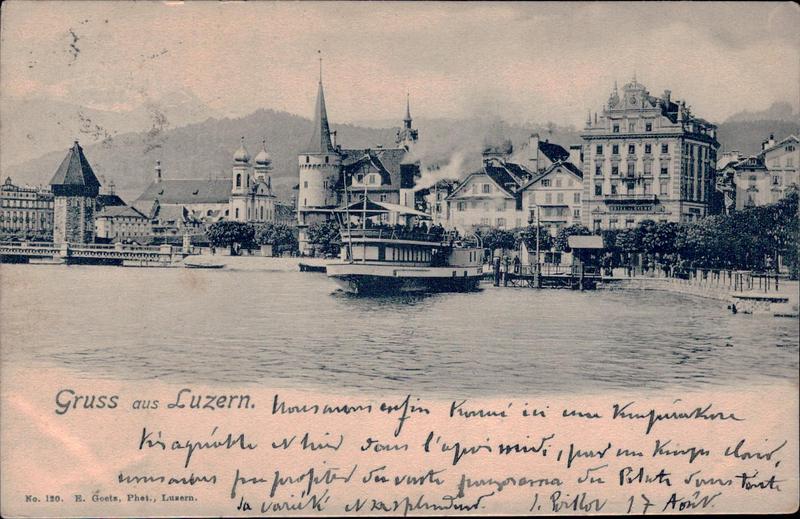 Gruss aus Luzern. Nous avons enfin trouvé ici une température
très agréable et hier dans l'après midi, par un temps clair,
nous avons pu profiter du vaste panorama du Pilate dans toute
sa variété et splendeur. J. 17 Août.
No. 120. E. Goetz, Phot., Luzern.